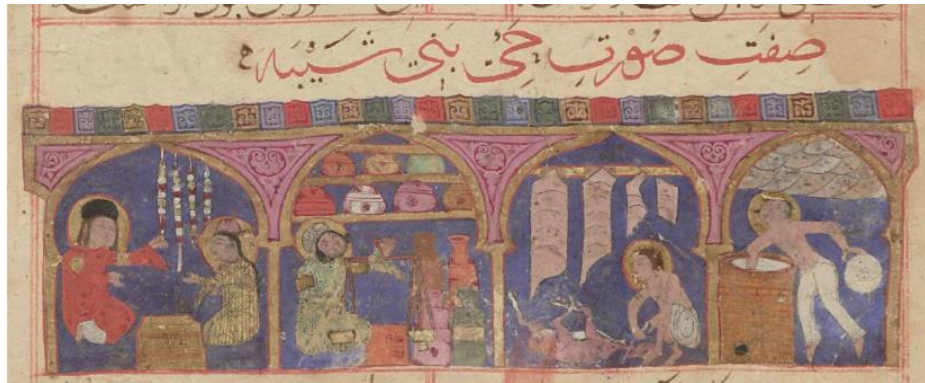 صِفَتِ صُوْرَتِ حَیِّ بَنِی شَیْبَه